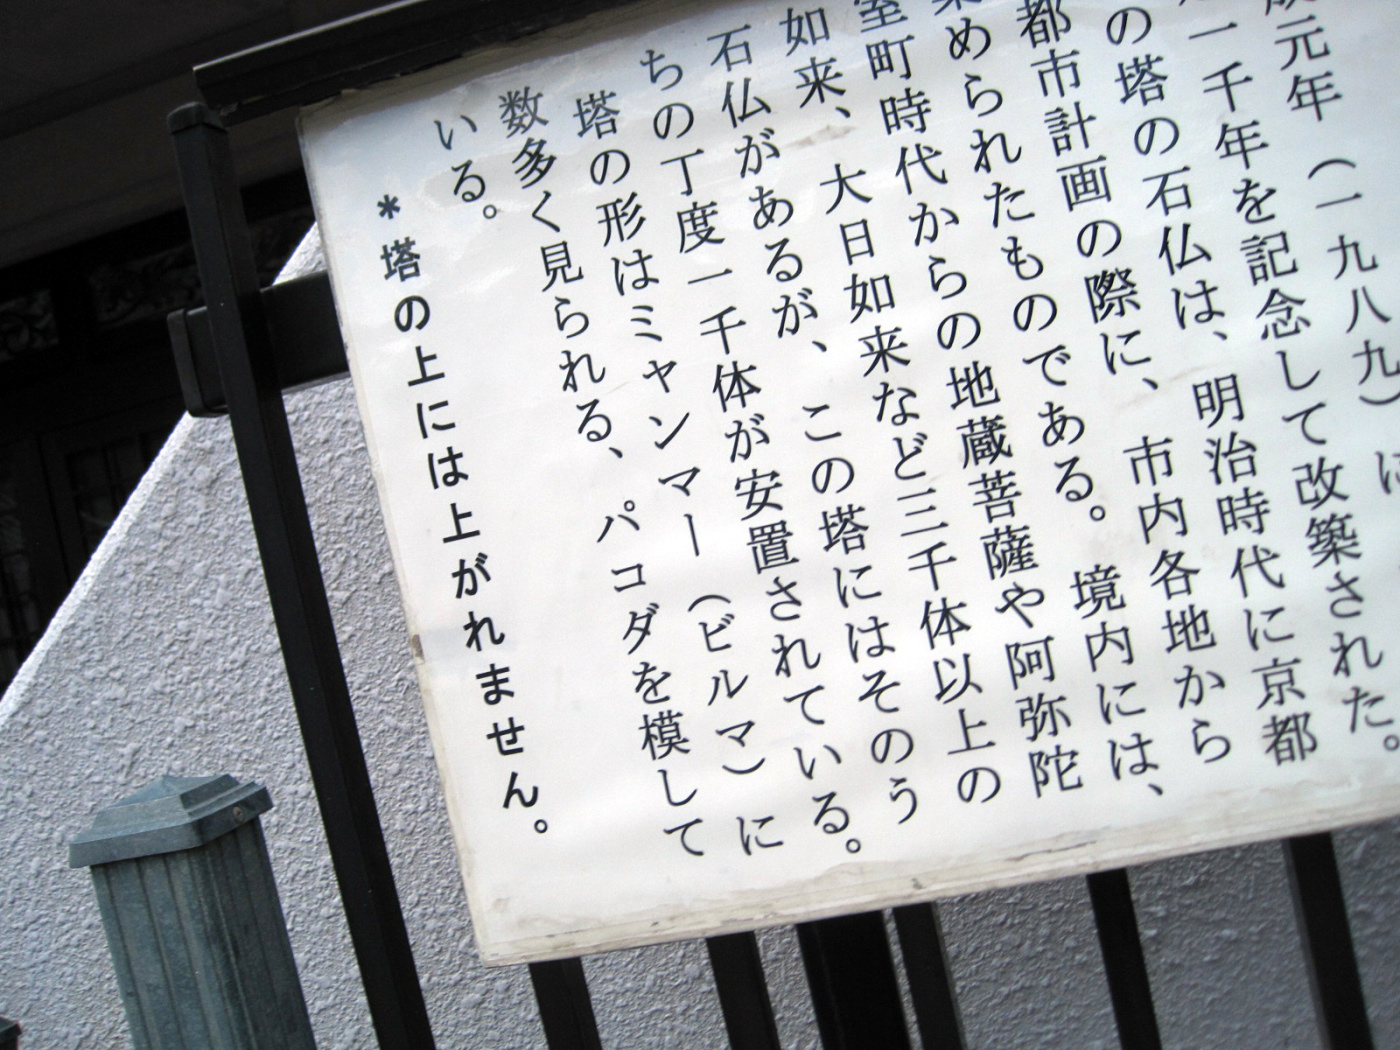 成元年（一九八九）に
一千年を記念して改築された。
の塔の石仏は、明治時代に京都
都市計画の際に、市内各地から
められたものである。境内には、
室町時代からの地蔵菩薩や阿弥陀
如来、大日如来など三千体以上の
石仏があるが、この塔にはそのう
ちの丁度一千体が安置されている。
塔の形はミャンマー（ビルマ）に
数多く見られる、パコダを模して
いる。
＊塔の上には上がれません。